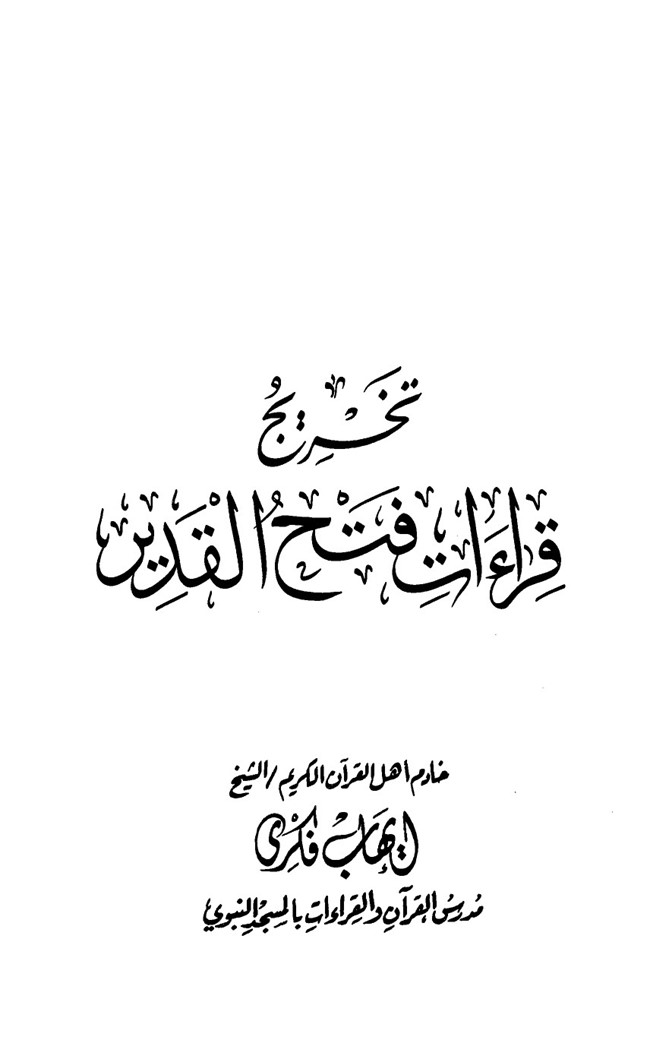 تخريج
قراءات فتح القدير
خادم اهل القرآن الكريم / الشيخ
إيهاب فكري
مدرس القرآن والقراءات بالمسجد النبوي